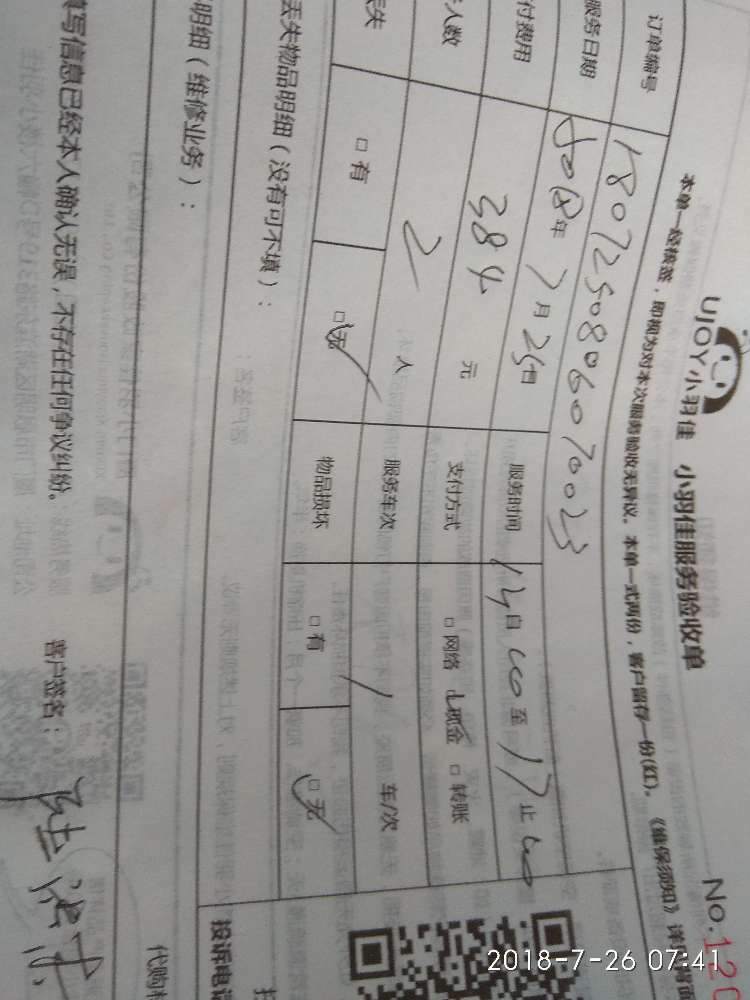 UJOY小羽佳 小羽佳服务验收单
No.120
本单一经核签，即视为对本次服务验收无异议。本单一式两份，客户留存一份(红)。《维保须知》详
订单编号 180725080607002号
服务日期 2018年7月25日 服务时间 14自00至17止00
付费用 384元 支付方式 □网络 □现金 □转账
人数 2人 服务车次 1车/次
丢失 □有 □无 物品损坏 □有 □无
丢失物品明细（没有可不填）：
明细（维修业务）：
投诉电
代购
写信息已经本人确认无误，不存在任何争议纠纷。 客户签名：
2018-7-26 07:41